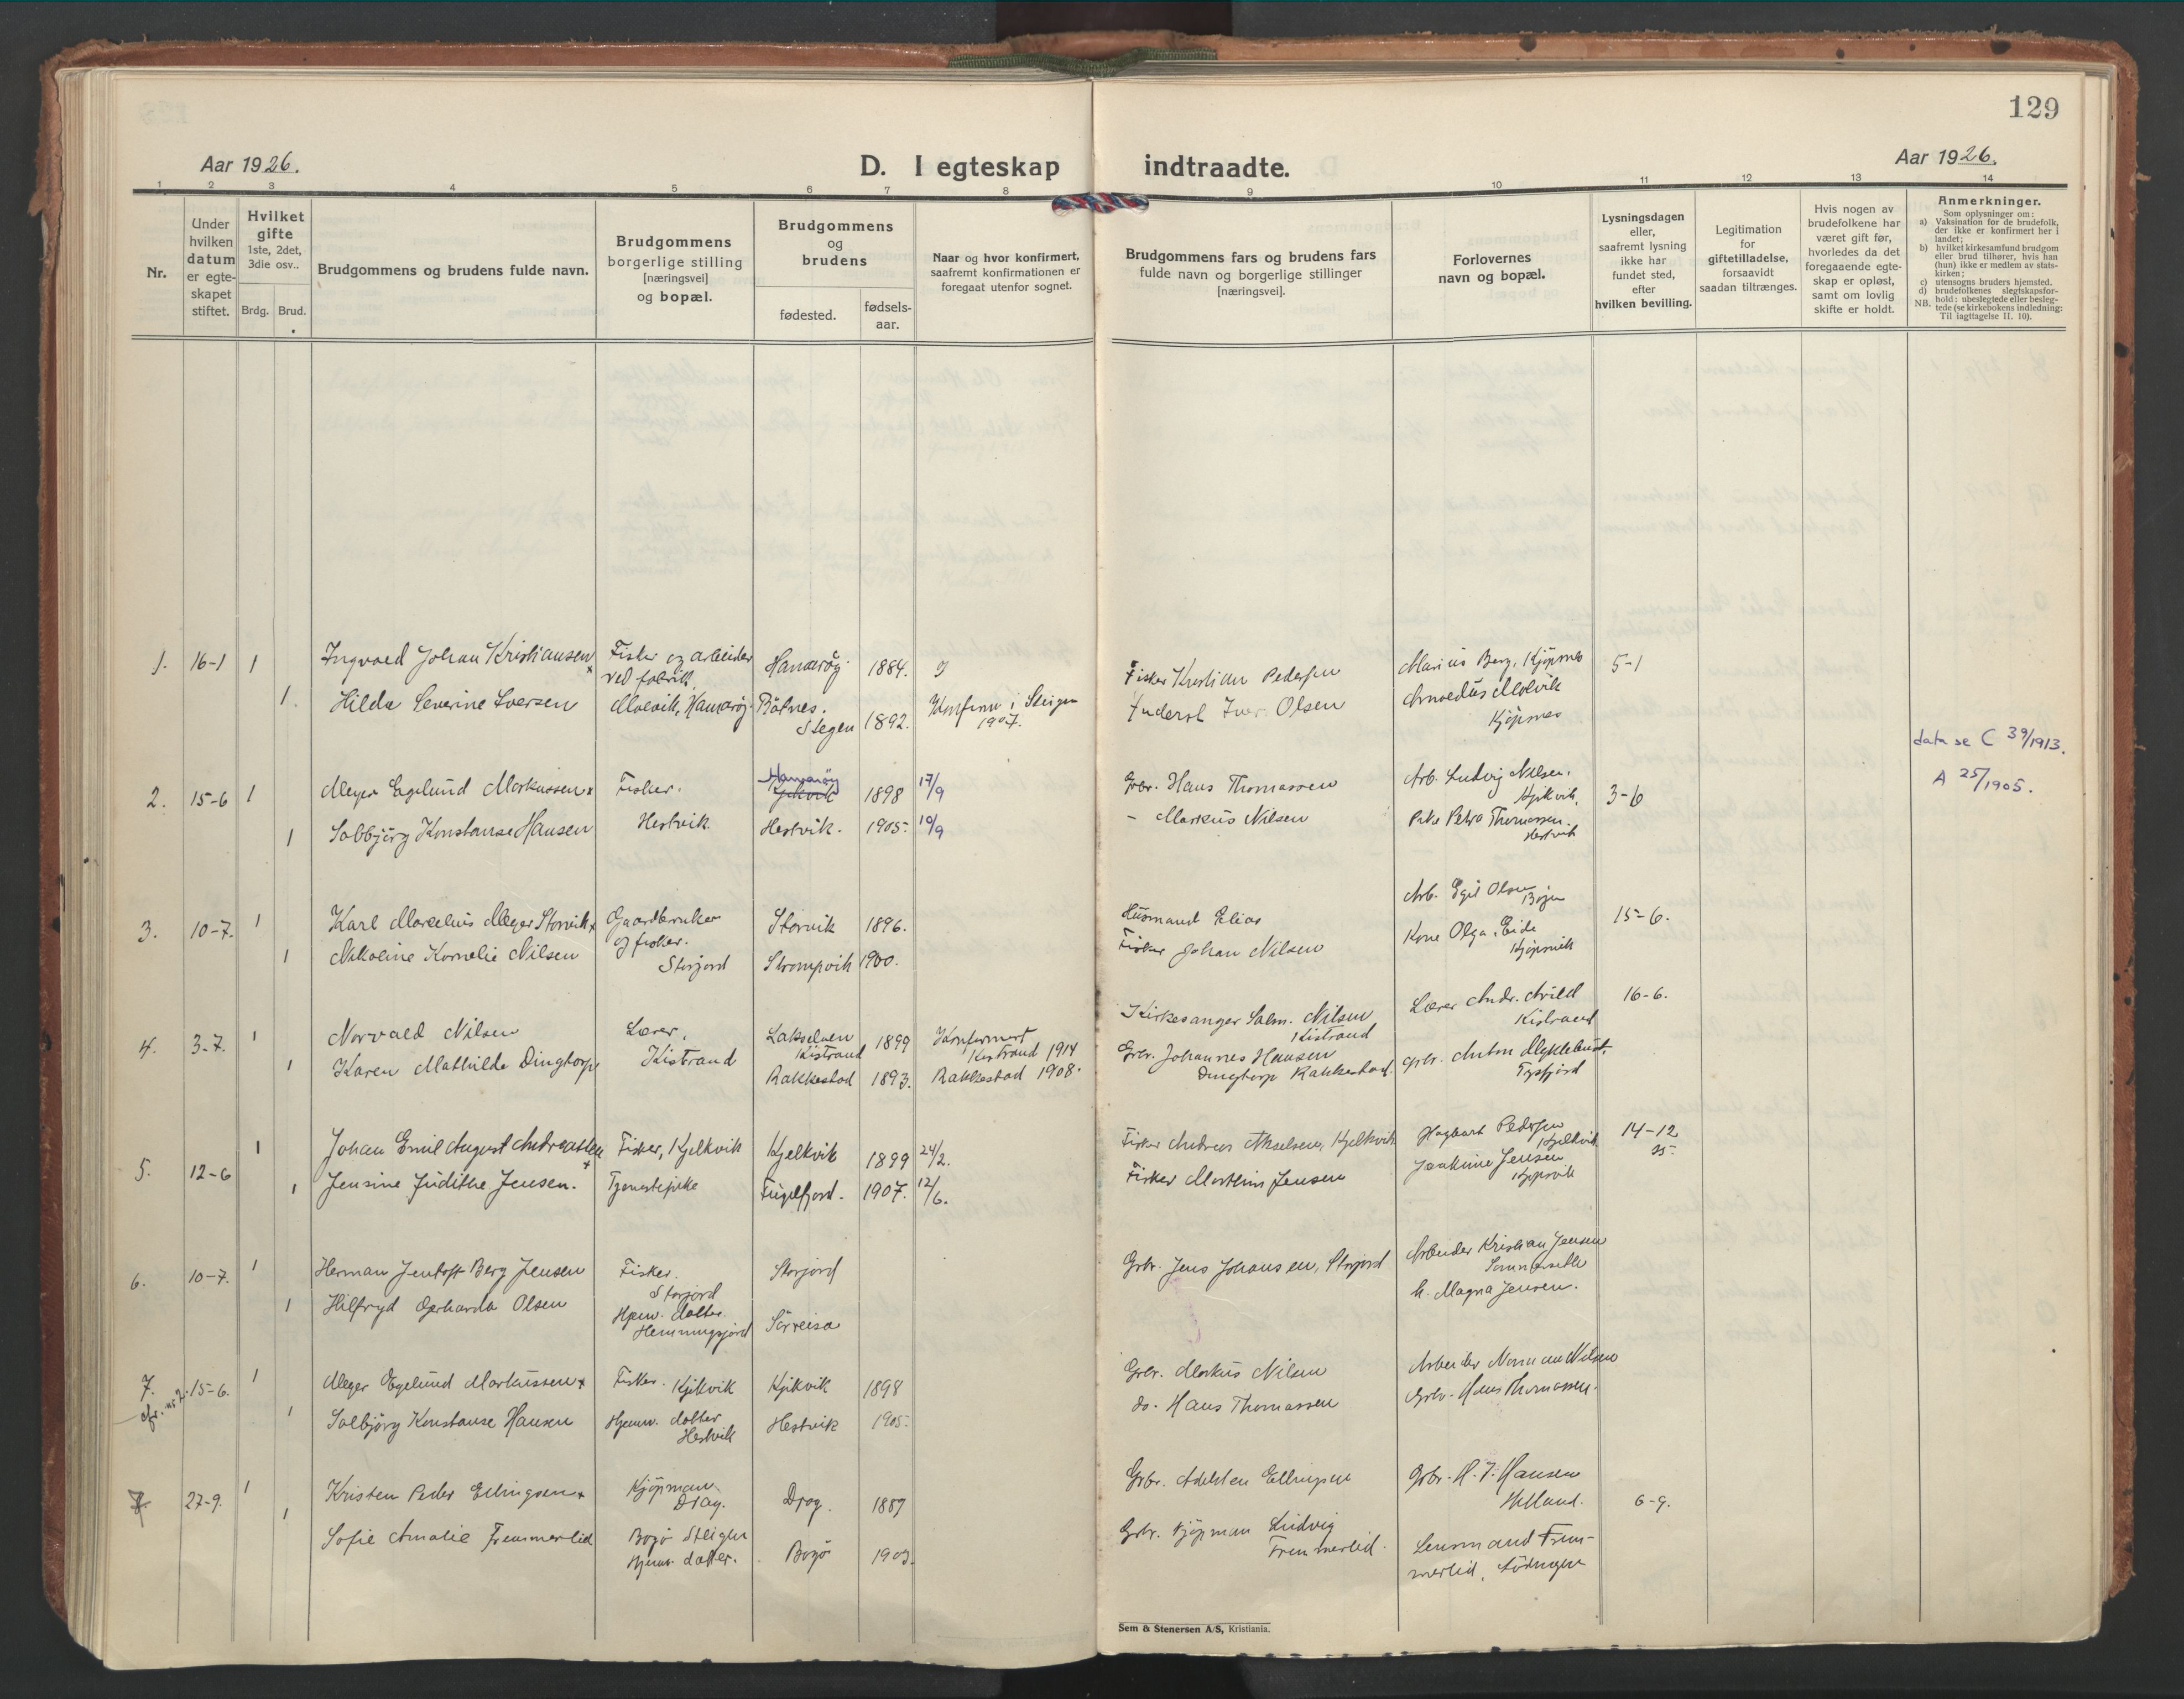 129
Aar 1926.
D. I egteskap indtraadte.
Aar 1926.
1 2 3 4 5 6 7 8 9 10 11 12 13 14
Nr.
Under
hvilken
datum
er egte-
skapet
stiftet.
Hvilket
gifte
1ste, 2det,
3die osv..
Brdg. Brud.
Brudgommens og brudens fulde navn.
Brudgommens
borgerlige stilling
[næringsvei]
og bopæl.
Brudgommens
og
brudens
fødested.
fødsels-
aar.
Naar og hvor konfirmert,
saafremt konfirmationen er
foregaat utenfor sognet.
Brudgommens fars og brudens fars
fulde navn og borgerlige stillinger
[næringsvei].
Forlovernes
navn og bopæl.
Lysningsdagen
eller,
saafremt lysning
ikke har
fundet sted,
efter
hvilken bevilling.
Legitimation
for
giftetilladelse,
forsaavidt
saadan tiltrænges.
Hvis nogen av
brudefolkene har
været gift før,
hvorledes da det
foregaaende egte-
skap er opløst,
samt om lovlig
skifte er holdt.
Anmerkninger.
Som oplysninger om:
a) Vaksination for de brudefolk,
der ikke er konfirmert her i
landet;
b) hvilket kirkesamfund brudgom
eller brud tilhører, hvis han
(hun) ikke er medlem av stats-
kirken;
c) utensogns bruders hjemsted.
d) brudefolkenes slegtskapsfor-
hold: ubeslegtede eller besleg-
NB. tede (se kirkebokens indledning:
Til iagttagelse II. 10).
1. 16-1 1 Ingvald Johan Kristiansen x
Fisker og arbeider
ved fabrik,
Hamarøy 1884.
Fisker Kristian Pedersen
Marius Berg, Kjöpnes
5-1
1. Hilda Severine Iversen
Molvik, Hamarøy
Bötnes.
Stegen 1892.
Konfirm i Steigen
1907.
Iver Olsen
Arnoldus Molvik
Kjöpnes
data se C 39/1913.
A 25/1905.
2. 15-6 1 Meyer Egelund Markussen x
Fisker.
Hamarøy
Kjikvik 1898 17/9
Grbr. Hans Thomassen
Arb. Ludvig Nilsen.
Kjikvik,
3-6
1 Solbjörg Konstanse Hansen
Hestvik.
Hestvik. 1905 10/9
- Markus Nilsen
Pike Petra Thomassen.
Hestvik
3. 10-7. 1 Karl Marcelius Meyer Storvik x
Gaardbruker
og fisker.
Storjord
Storvik 1896.
Husmand Elias
Arb. Egil Olsen
15-6.
1 Nikoline Kornelie Nilsen
1900.
Fisker Johan Nilsen
Kone Olga Eide
Kjöpsvik
4. 3-7. 1 Norvald Nilsen
Lærer.
Kistrand
Lakselven
Kistrand 1899
Konfirmert
Kistrand 1914
Kirkesanger Salm. Nilsen
Kistrand
Lærer Andr. Arild
Kistrand
16-6.
1 Karen Mathilde Dingtorp
Rakkestad 1893.
Rakkestad 1908.
Grbr. Johannes Hansen
Dingtorp Rakkestad.
grbr. Anton Myklebust,
Tysfjord
5. 12-6 1 Johan Emil August Andreassen x
Fisker, Kjelkvik
Kjelkvik 1899 24/2.
Fisker Andreas Akselsen, Kjelkvik
Hagbart Pedersen
Kjelkvik
14-12
25.
1 Jensine Judithe Jensen.
Tjenestepike
Fuglfjord. 1907. 12/6.
Fisker Martin Jensen
Joakime Jensen
Kjöpsvik
6. 10-7. 1 Herman Jentoft Berg Jensen
Fisker.
Storjord
Storjord
Grbr. Jens Johansen, Storjord
Arbeider Kristian Jensen
1 Hilfryd Gerharda Olsen
Hjem. datter.
Hemmingsjord
Sörreisa
k. Magna Jensen.
7. 15-6. 1 Meyer Egelund Markussen x
cfr. nr 2.
Fisker. Kjikvik
Kjikvik 1898
Grbr. Markus Nilsen
Arbeider Norman Nilsen
1 Solbjörg Konstanse Hansen
Hjemv. datter
Hestvik
Hestvik 1905
do. Hans Thomassen
Grbr. Hans Thomassen.
7 27-9. 1 Kristen Peder Ellingsen x
Kjöpman.
Drag.
Drag. 1889
Grbr. Adelsten Ellingsen
Grbr. H. J. Hansen
Helland.
6-9.
1 Sofie Amalie Fremmerlid
Bogö Steigen
Hjemv. datter.
Bogö 1903.
Grbr. Kjöpman Ludvig
Fremmerlid.
Lensmand Frem-
merlid, Lödingen
Sem & Stenersen A/S, Kristiania.